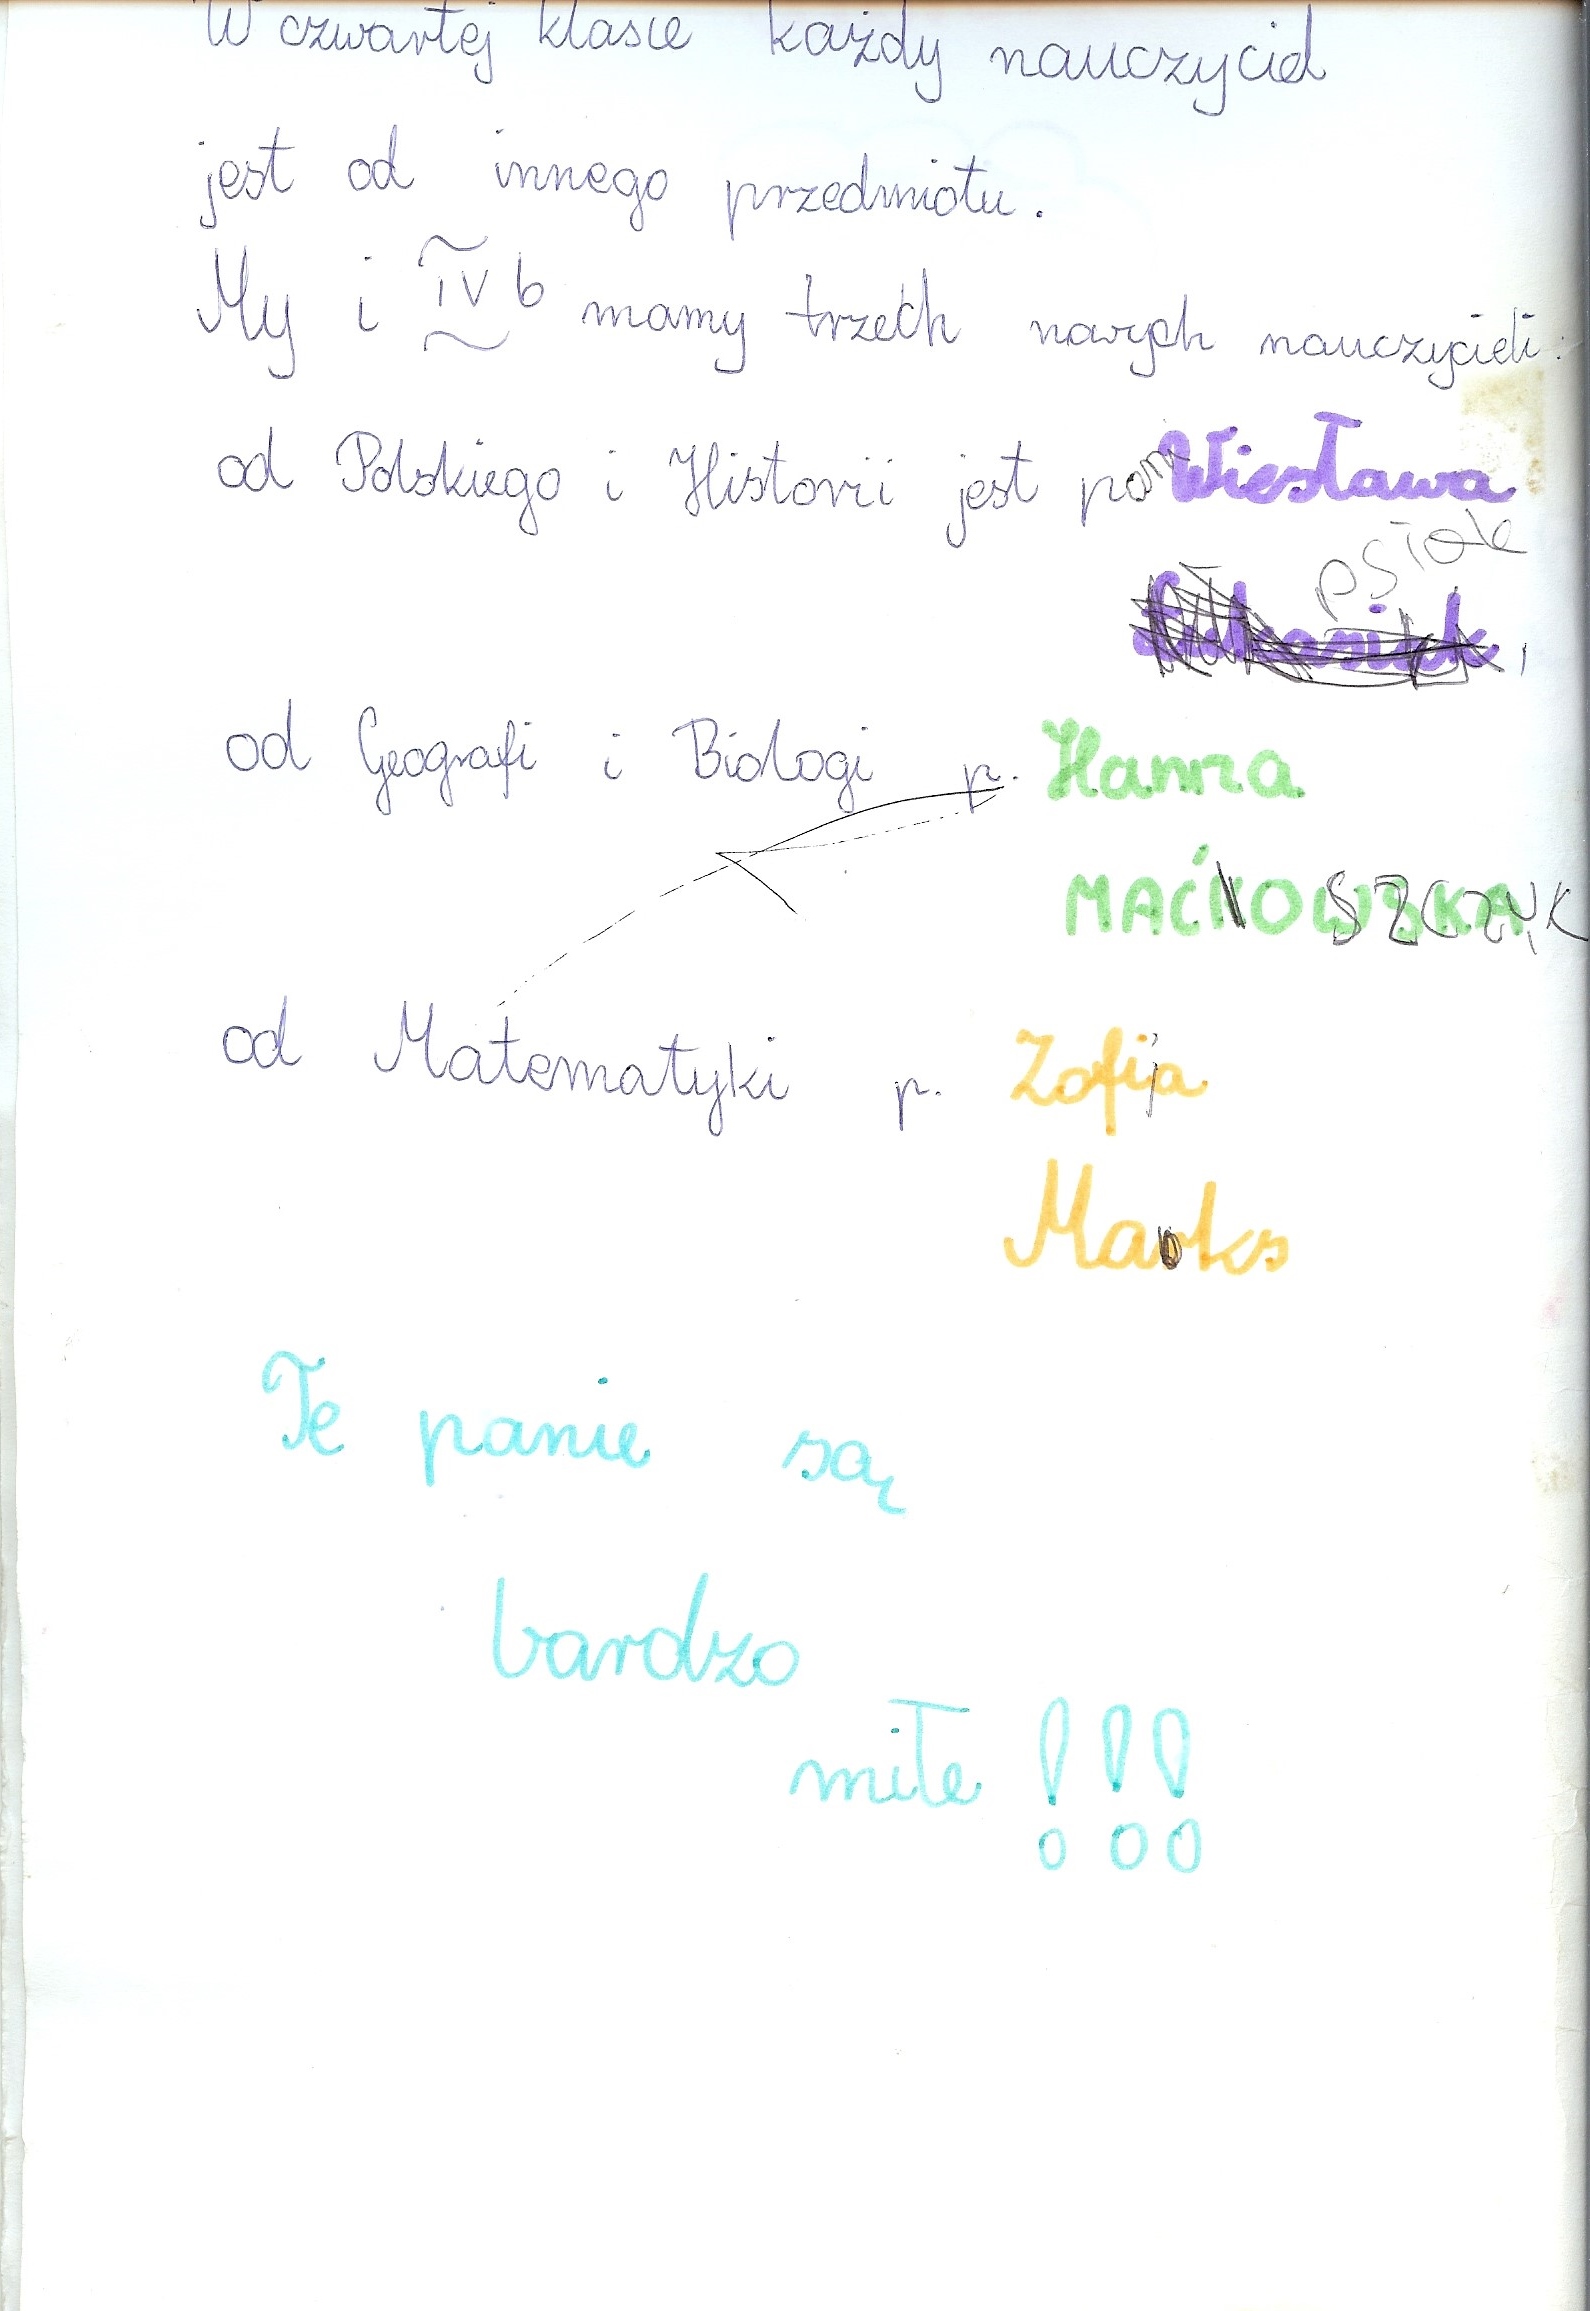 W czwartej klasie każdy nauczyciel
jest od innego przedmiotu.
My i IV b mamy trzech nowych nauczycieli:
od Polskiego i Historii jest pani Wiesława
psiak
,
od Geografi i Biologi p. Hanna
MAĆKOWSKA SZCZYK
od Matematyki p. Zofija
Marks
Te panie są
bardzo
miłe !!!